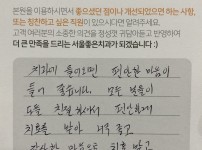 본원을 이용하시면서 좋으셨던 점이나 개선되었으면 하는 사항,
또는 칭찬하고 싶은 직원이 있으시다면 알려주세요.
고객 여러분의 소중한 의견을 정성껏 귀담아듣고 반영하여
더 큰 만족을 드리는 서울좋은치과가 되겠습니다 :)
치과가 들어오면 편안한 마음이
들어 좋습니다. 모든 분들이
도움 친절하셔서 편안하게
치료를 받아 너무 좋고
감사한 마음으로 치료 받고